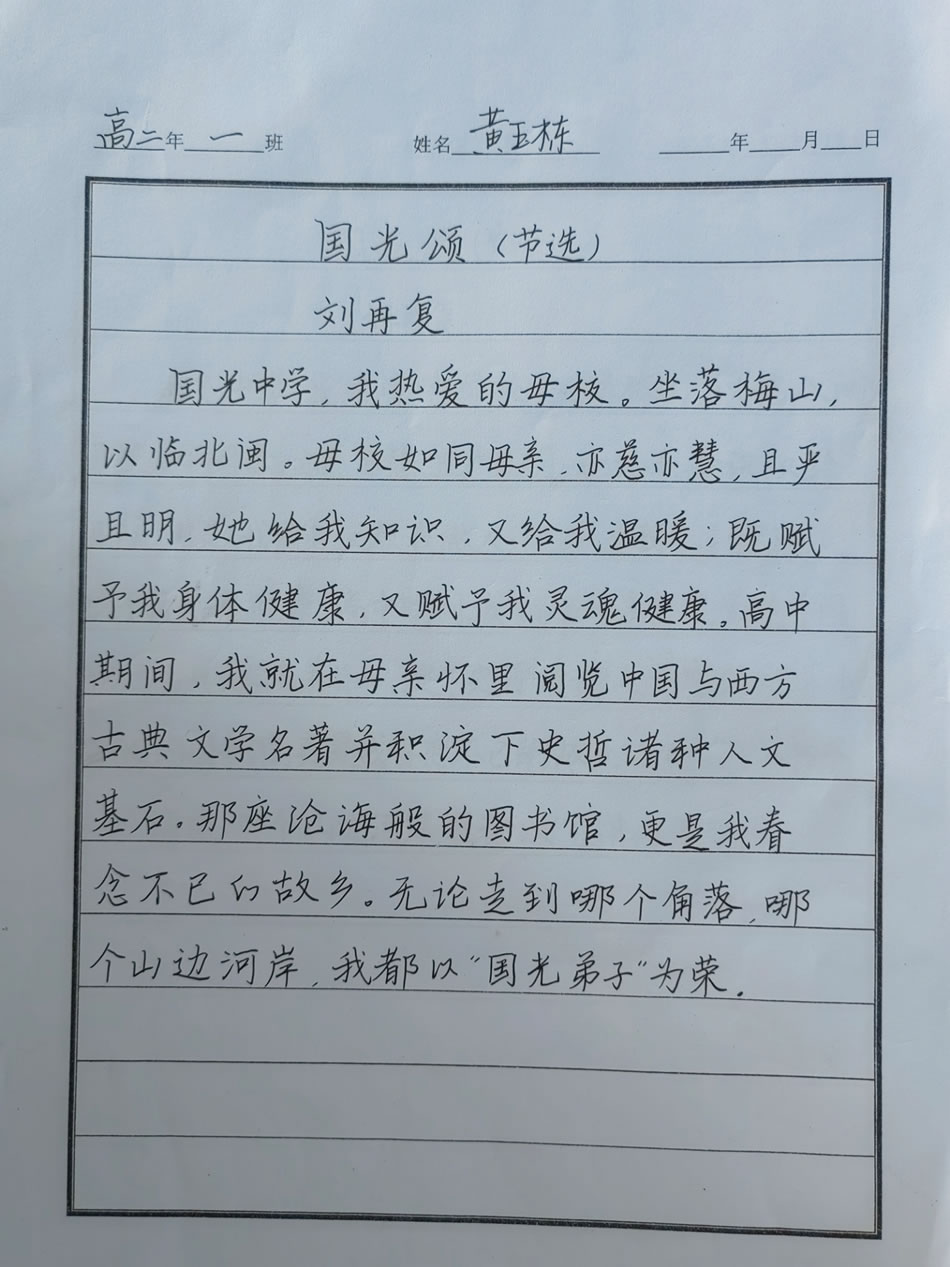 高二年 一 班 姓名 黄玉栋 年 月 日
国光颂（节选）
刘再复
国光中学，我热爱的母校。坐落梅山，
以临北闽。母校如同母亲，亦慈亦慧，且严
且明，她给我知识，又给我温暖；既赋
予我身体健康，又赋予我灵魂健康。高中
期间，我就在母亲怀里阅览中国与西方
古典文学名著并积淀下史哲诸种人文
基石。那座沧海般的图书馆，更是我眷
念不已的故乡。无论走到哪个角落，哪
个山边河岸，我都以“国光弟子”为荣．